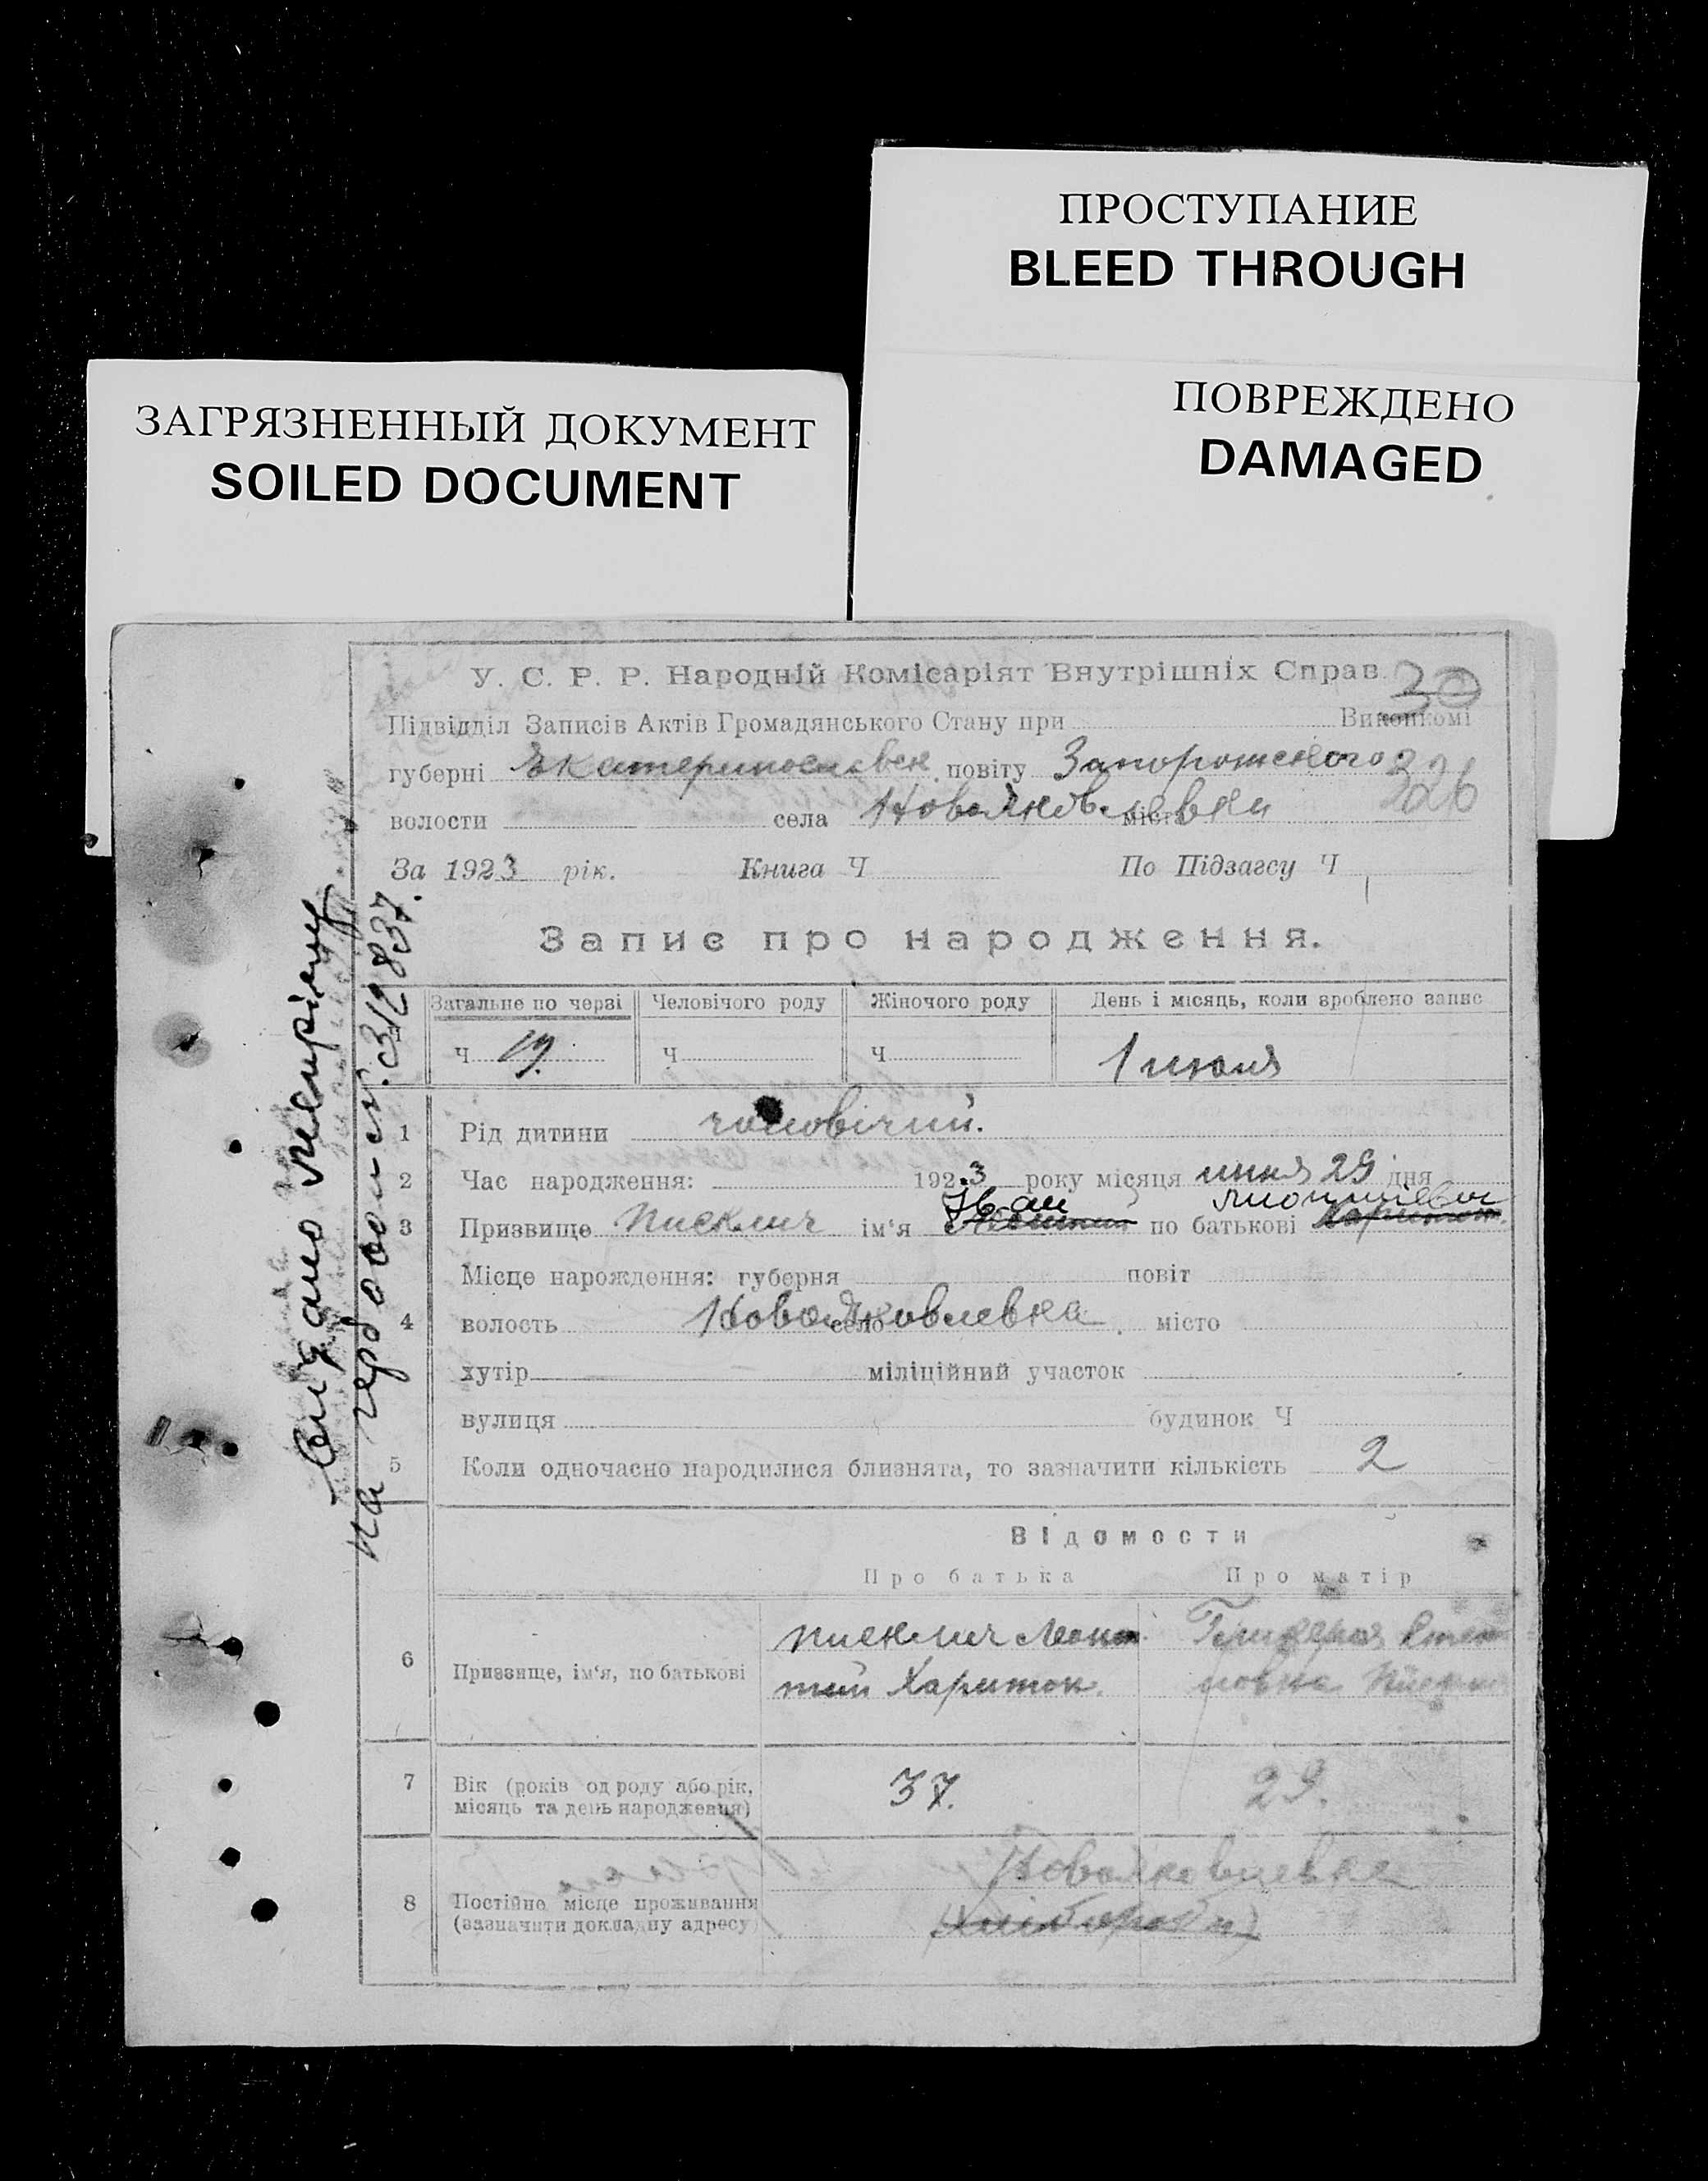 ПРОСТУПАНИЕ
BLEED THROUGH
ПОВРЕЖДЕНО
DAMAGED
ЗАГРЯЗНЕННЫЙ ДОКУМЕНТ
SOILED DOCUMENT
У. С. Р. Р. Народній Комісаріят Внутрішніх Справ. 30
Підвідділ Записів Актів Громадянського Стану при Виконкомі
губерні Екатеринославск повіту Запорожского 326
волости села Новояковлевки міста
За 1923 рік. Книга Ч По Підзагсу Ч
Запис про народження.
Загальне по черзі Человічого роду Жіночого роду День і місяць, коли зроблено запис
Ч 19. Ч Ч 1 июля
1 Рід дитини чоловічий.
2 Час народження: 1923 року місяця июня 29 дня
Иван
3 Призвище Писклич ім‘я по батькові Харитон.
Місце народження: губерня повіт
4 волость Новояковлевка село місто
хутір міліційний участок
вулиця будинок Ч
5 Коли одночасно народилися близнята, то зазначити кількість 2
Відомости
Про батька Про матір
Писклич Леон
6 Призвище, ім‘я, по батькові
тий Харитон.
7 Вік (років од роду або рік, місяць та день народження) 37. 29.
Новояковлевка
8 Постійне місце проживання
(зазначити докладну адресу) (Хлібороби)
Видано метріку
312837.